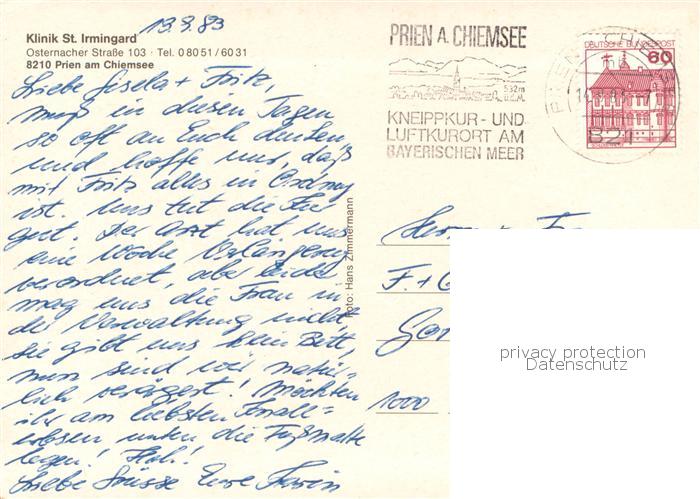 13.9.83
Klinik St. Irmingard
Osternacher Straße 103 · Tel. 0 80 51 / 60 31
8210 Prien am Chiemsee
Liebe Gisela + Fritz,
muß in diesen Tagen
so oft an Euch denken
und hoffe nur, daß
mit Fritz alles in Ordnung
ist. Uns tut die Kur
gut. Der Arzt hat uns
eine Woche Verlängerung
verordnet, aber leider
mag uns die Frau in
der Verwaltung nicht,
sie gibt uns kein Bett,
nun sind wir natür-
lich verärgert! Möchten
ihr am liebsten Knall-
erbsen unter die Fußmatte
legen!
Liebe Grüsse Eure
Foto: Hans Zimmermann
PRIEN A. CHIEMSEE
532m
ü.d.M.
KNEIPPKUR- UND
LUFTKURORT AM
BAYERISCHEN MEER
DEUTSCHE BUNDESPOST
60
821
F. + G
1000
privacy protection
Datenschutz